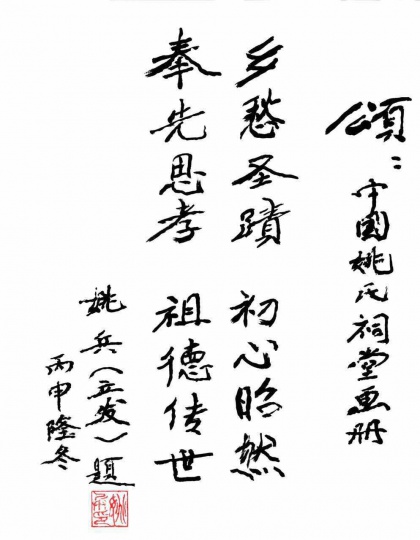 頌：中国姚氏祠堂画册
乡愁圣蹟 初心昭然
奉先思孝 祖德传世
姚兵（立发）题
丙申隆冬